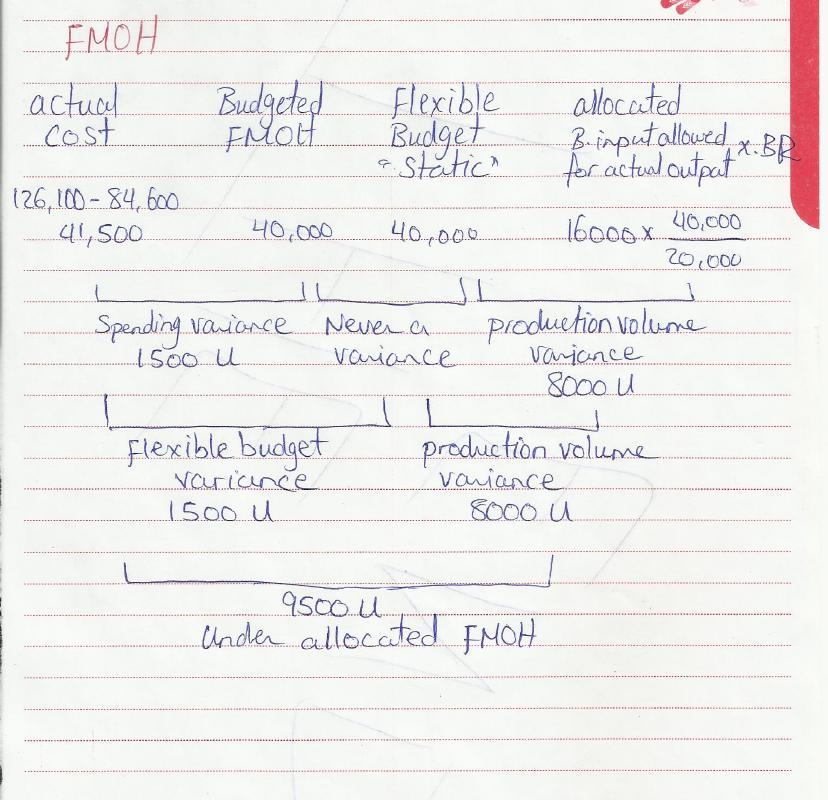 FMOH
actual Budgeted Flexible allocated
cost FMOH Budget B. input allowed x.BR
"Static" for actual output
126,100 - 84,600
41,500 40,000 40,000 16000 x 40,000
20,000
Spending variance Never a production volume
1500 U variance variance
8000 U
flexible budget production volume
variance variance
1500 U 8000 U
9500 U
Under allocated FMOH